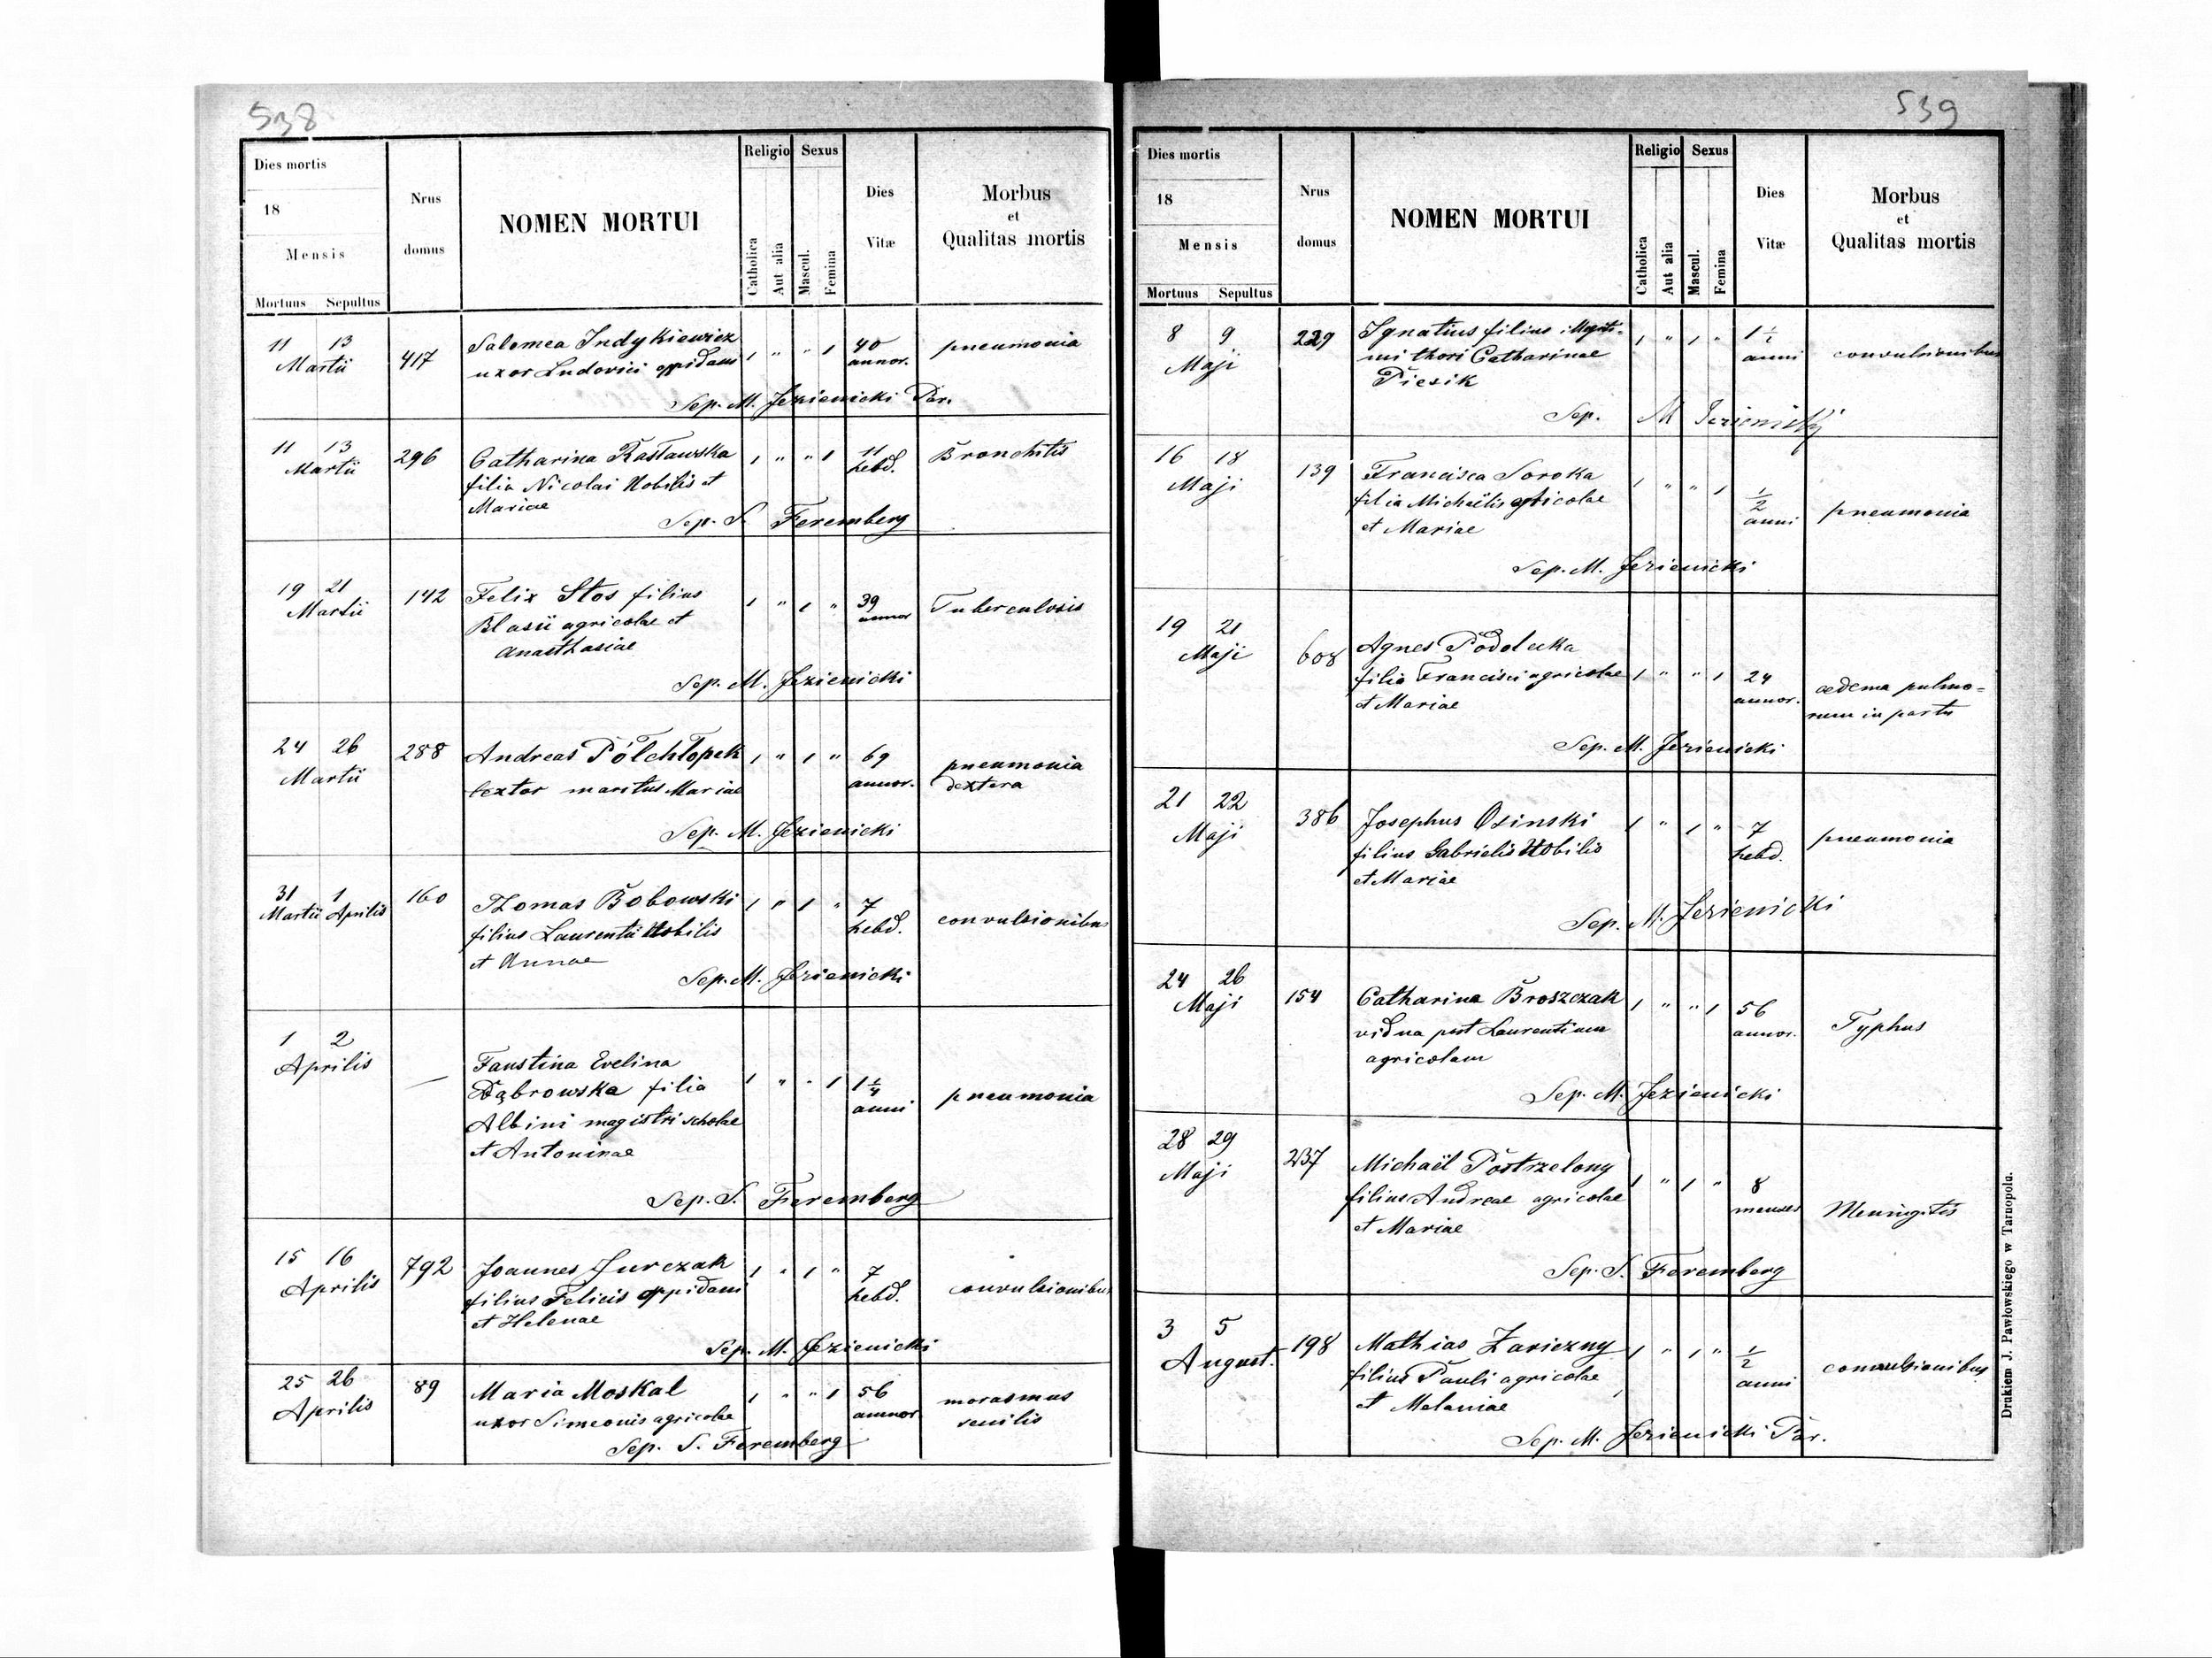 538
Dies mortis
18
Mensis
Mortuus Sepultus
Nrus
domus
NOMEN MORTUI
Religio
Catholica
Aut alia
Sexus
Mascul.
Femina
Dies
Vitæ
Morbus
et
Qualitas mortis
11 13
Martii
417
Salomea Indykiewicz
uxor Ludovici oppidani
1 " " 1
40
annor.
pneumonia
Sep. M. Jezienicki Par.
11 13
Martii
296
Catharina Rastawska
filia Nicolai Nobilis et
Mariae
1 " " 1
11
hebd.
Bronchitis
Sep. S. Feremberg
19 21
Martii
142
Felix Stos filius
Blasii agricolae et
Anasthasiae
1 " 1 "
39
annor
Tuberculosis
Sep. M. Jezienicki
24 26
Martii
288
Andreas Półchłopek
textor maritus Mariae
1 " 1 "
69
annor.
pneumonia
dextera
Sep. M. Jezienicki
31 1
Martii Aprilis
160
Thomas Bobowski
filius Laurentii Nobilis
et Annae
1 " 1 "
7
hebd.
convulsionibus
Sep. M. Jezienicki
1 2
Aprilis
—
Faustina Evelina
Dąbrowska filia
Albini magistri scholae
et Antoninae
1 " " 1
1 1/4
anni
pneumonia
Sep. S. Feremberg
15 16
Aprilis
792
Joannes Jurczak
filius Felicis oppidani
et Helenae
1 " 1 "
7
hebd.
convulsionibus
Sep. M. Jezienicki
25 26
Aprilis
89
Maria Moskal
uxor Simeonis agricolae
1 " " 1
56
annor
morasmus
senilis
Sep. S. Feremberg
539
Dies mortis
18
Mensis
Mortuus Sepultus
Nrus
domus
NOMEN MORTUI
Religio
Catholica
Aut alia
Sexus
Mascul.
Femina
Dies
Vitæ
Morbus
et
Qualitas mortis
8 9
Maji
229
Ignatius filius
thori Catharinae
Piesik
1 " 1 "
1 1/2
anni
convulsionibus
Sep. M Jezienicki
16 18
Maji
139
Francisca Soroka
filia Michaëlis agricolae
et Mariae
1 " " 1
1/2
anni
pneumonia
Sep. M. Jezienicki
19 21
Maji
608
Agnes Podolecka
filia Francisci agricolae
et Mariae
1 " " 1
24
annor.
oedema pulmo=
num in partu
Sep. M. Jezienicki
21 22
Maji
386
Josephus Osinski
filius Gabrielis Nobilis
et Mariae
1 " 1 "
7
hebd.
pneumonia
Sep. M. Jezienicki
24 26
Maji
154
Catharina Broszczak
vidua post Laurentium
agricolam
1 " " 1
56
annor.
Typhus
Sep. M. Jezienicki
28 29
Maji
237
Michaël Postrzelony
filius Andreae agricolae
et Mariae
1 " 1 "
8
menses
Meningitis
Sep. S. Feremberg
3 5
August.
198
Mathias Zariczny
filius Pauli agricolae
et Melaniae
1 " 1 "
1/2
anni
convulsionibus
Sep. M. Jezienicki Par.
Drukiem J. Pawłowskiego w Tarnopolu.